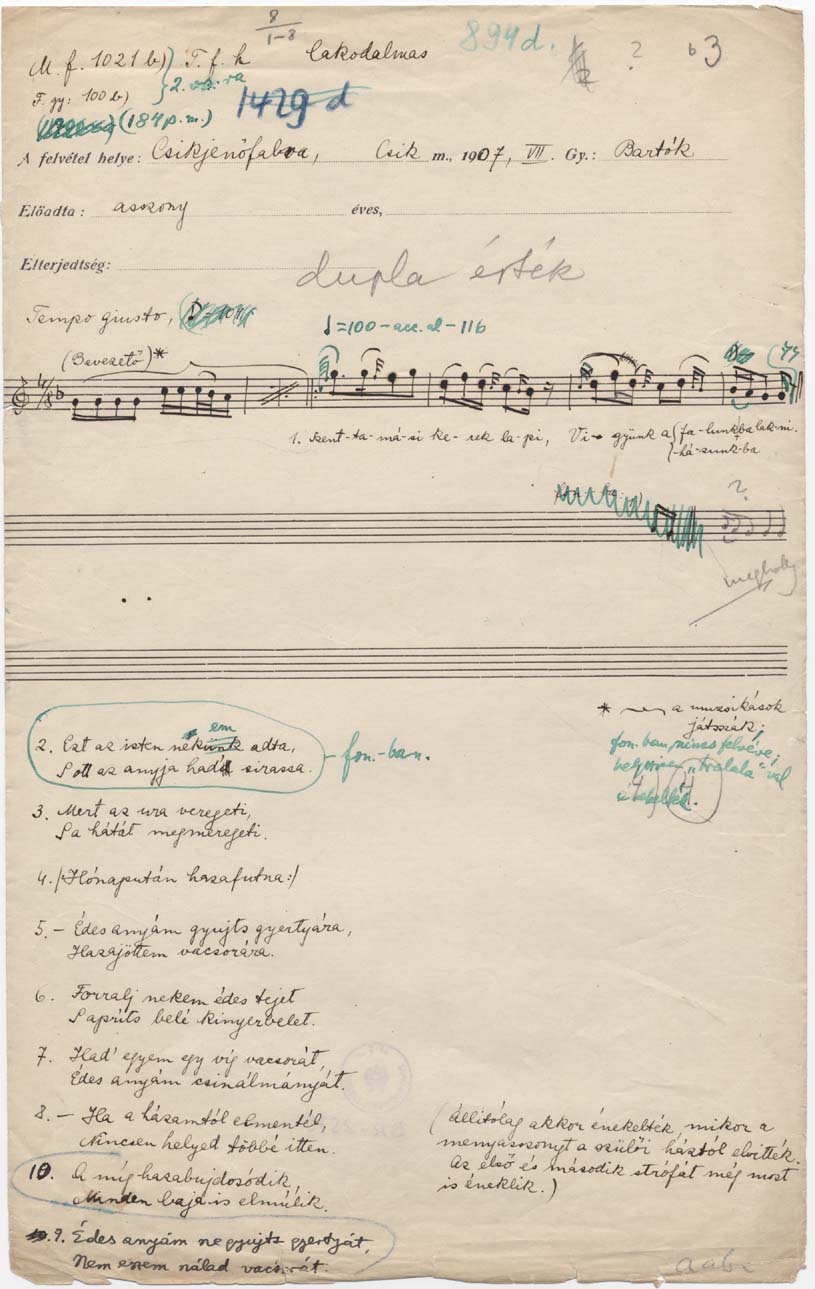 8
1-8
M. f. 1021 b) T. f. h Lakodalmas 894 d. ? b 3
F. gy: 100 b) 2. vsz. ra
(184 p. m.) 1429 d
A felvétel helye: Csikjenőfalva, Csik m., 1907, VII. Gy.: Bartók
Előadta: asszony éves,
Elterjedtség:
dupla érték
Tempo giusto,
=100-acc. al-116
(Bevezető)*
1. Szent-ta-má-si ke-rek la-pi, Vi- gyünk a fa-lunkba lak-ni.
-há-zunk-ba
?
* a muzsikások
játsszák;
2. Ezt az isten nekem adta,
S ott az anyja had' sirassa. - fon.-ban.
fon. ban nincs felvéve;
helyette „tralala"-val
3. Mert az ura veregeti,
S a hátát megmeregeti.
4. /:Hónapután hazafutna:/
5. - Édes anyám gyujts gyertyára,
Hazajöttem vacsorára.
6. Forralj nekem édes tejet
S apríts belé kinyérbelet.
7. Had' egyem egy víg vacsorát,
Édes anyám csinálmányját.
8. - Ha a házamtól elmentél,
Nincsen helyed többé itten.
(Állítólag akkor énekelték, mikor a
menyasszonyt a szülői háztól elvitték.
Az első és második strófát még most
is éneklik.)
10. A míg hazabujdosódik,
Minden baja is elmúlik.
9. Édes anyám ne gyujts gyertyát,
Nem eszem nálad vacsorát.